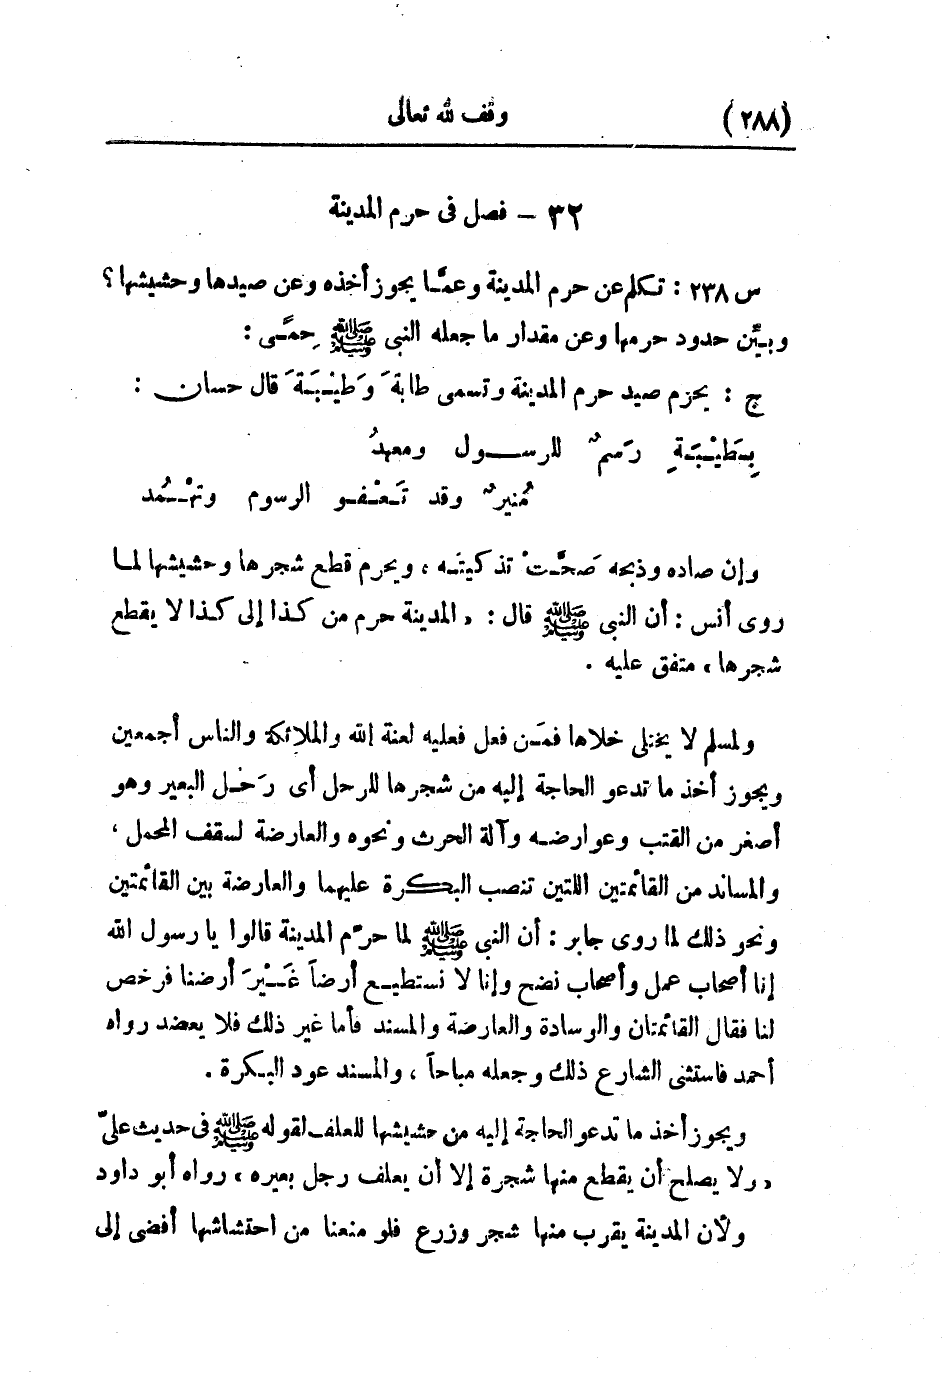 (٢٨٨) وقف لله تعالى
٣٢ – فصل فى حرم المدينة
س ٢٣٨ : تكلم عن حرم المدينة وعمَّا يجوز أخذه وعن صيدها وحشيشها ؟
وبيِّن حدود حرمها وعن مقدار ما جعله النبى ﷺ حِمَّى :
ج : يحرم صيد حرم المدينة وتسمى طابةَ وَطَيْبَةَ قال حسان :
بِطَيْبَةِ رَسمٌ للرسول ومعهدُ
مُنيرٌ وقد تَعْفو الرسوم وتهْمُد
وإن صاده وذبحه صَحَّتْ تذكيتَه ، ويحرم قطع شجرها وحشيشها لما
روى أنس : أن النبى ﷺ قال : « المدينة حرم من كذا إلى كذا لا يقطع
شجرها » متفق عليه .
ولمسلم لا يختلى خلاها فمَن فعل فعليه لعنة الله والملائكة والناس أجمعين
ويجوز أخذ ما تدعو الحاجة إليه من شجرها للرحل أى رَحْل البعير وهو
أصغر من القتب وعوارضه وآلة الحرث ونحوه والعارضة لسقف المحمل ،
والمساند من القائمتين اللتين تنصب البكرة عليهما والعارضة بين القائمتين
ونحو ذلك لما روى جابر : أن النبى ﷺ لما حرّم المدينة قالوا يا رسول الله
إنا أصحاب عمل وأصحاب نضح وإنا لا نستطيع أرضاً غَيْرَ أرضنا فرخص
لنا فقال القائمتان والوسادة والعارضة والمسند فأما غير ذلك فلا يعضد رواه
أحمد فاستثنى الشارع ذلك وجعله مباحاً ، والمسند عود البكرة .
ويجوز أخذ ما تدعو الحاجة إليه من حشيشها للعلف لقوله ﷺ فى حديث علىّ
« ولا يصلح أن يقطع منها شجرة إلا أن يعلف رجل بعيره » رواه أبو داود
ولأن المدينة يقرب منها شجر وزرع فلو منعنا من احتشاشها أفضى إلى